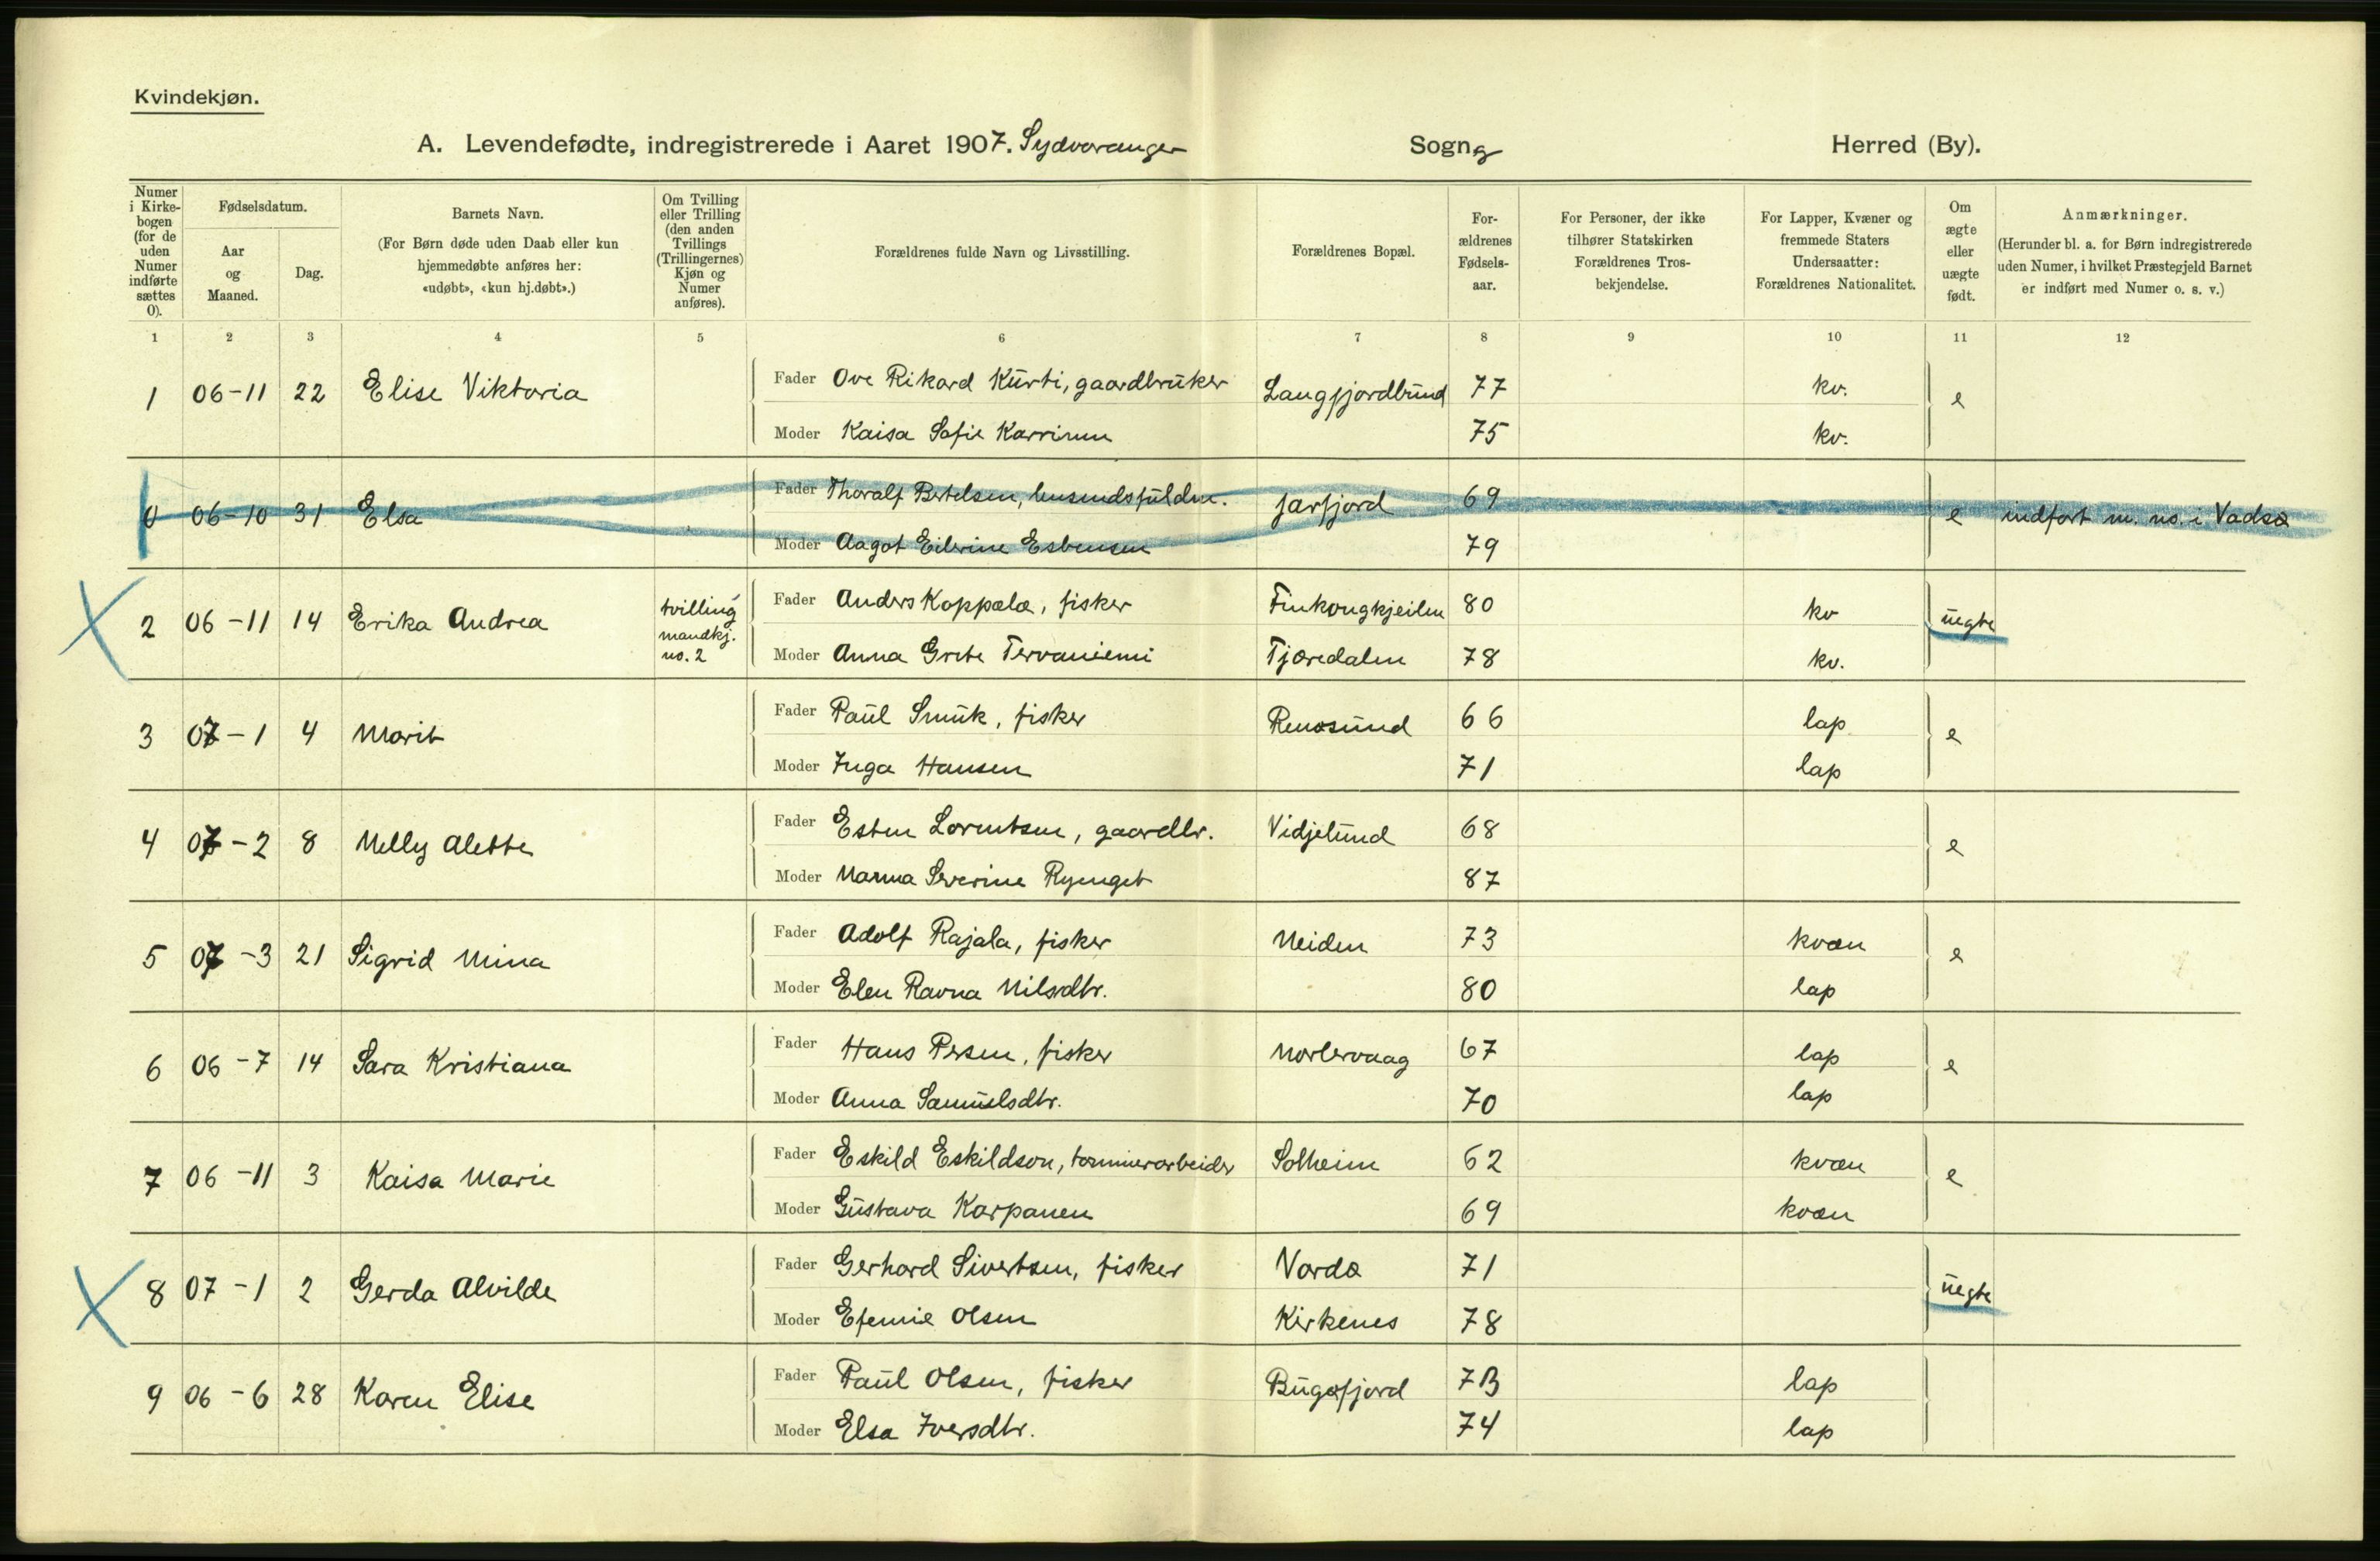 Kvindekjøn.
A. Levendefødte, indregistrerede i Aaret 1907. Sydvaranger Sogn og Herred (By).
Numer i Kirke-bogen (for de uden Numer indførte sættes 0).
Fødselsdatum.
Aar og Maaned.
Dag.
Barnets Navn.
(For Børn døde uden Daab eller kun hjemmedøbte anføres her: «udøbt», «kun hj.døbt».)
Om Tvilling eller Trilling (den anden Tvillings (Trillingernes) Kjøn og Numer anføres).
Forældrenes fulde Navn og Livsstilling.
Forældrenes Bopæl.
For-ældrenes Fødsels-aar.
For Personer, der ikke tilhører Statskirken Forældrenes Tros-bekjendelse.
For Lapper, Kvæner og fremmede Staters Undersaatter: Forældrenes Nationalitet.
Om ægte eller uægte født.
Anmærkninger.
(Herunder bl. a. for Børn indregistrerede uden Numer, i hvilket Præstegjeld Barnet er indført med Numer o. s. v.)
1 2 3 4 5 6 7 8 9 10 11 12
1 06-11 22 Elise Viktoria Fader Ove Rikard Kurti, gaardbruker Langfjordbund 77 kv. e
Moder Kaisa Sofie Karrinen 75 kv.
0 06-10 31 Elsa Fader Thoralf Bertelsen, lensmdsfuldm. Jarfjord 69 e indført m. no. i Vadsø
Moder Aagot Eilerine Esbensen 79
2 06-11 14 Erika Andrea tvilling mandkj. no. 2 Fader Anders Koppala, fisker 80 kv uegte
Moder Anna Grete Tervaniemi Tjæredalen 78 kv.
3 07-1 4 Marit Fader Paul Smuk, fisker Renøsund 66 lap e
Moder Inga Hansen 71 lap
4 07-2 8 Nelly Alette Fader Esten Lorentsen, gaardbr. Vidjelund 68 e
Moder Nanna Severine Ryenget 87
5 07-3 21 Sigrid Mina Fader Adolf Rajala, fisker Neiden 73 kvæn e
Moder Elen Ravna Nilsdtr. 80 lap
6 06-7 14 Sara Kristiana Fader Hans Persen, fisker Norlervaag 67 lap e
Moder Anna Samuelsdtr. 70 lap
7 06-11 3 Kaisa Marie Fader Eskild Eskildson, tømmerarbeider Solheim 62 kvæn e
Moder Gustava Karpanen 69 kvæn
8 07-1 2 Gerda Alvilde Fader Gerhard Sivertsen, fisker Vardø 71 uegte
Moder Efemie Olsen Kirkenes 78
9 06-6 28 Karen Elise Fader Paul Olsen, fisker Bugøfjord 73 lap
Moder Elsa Iversdtr. 74 lap